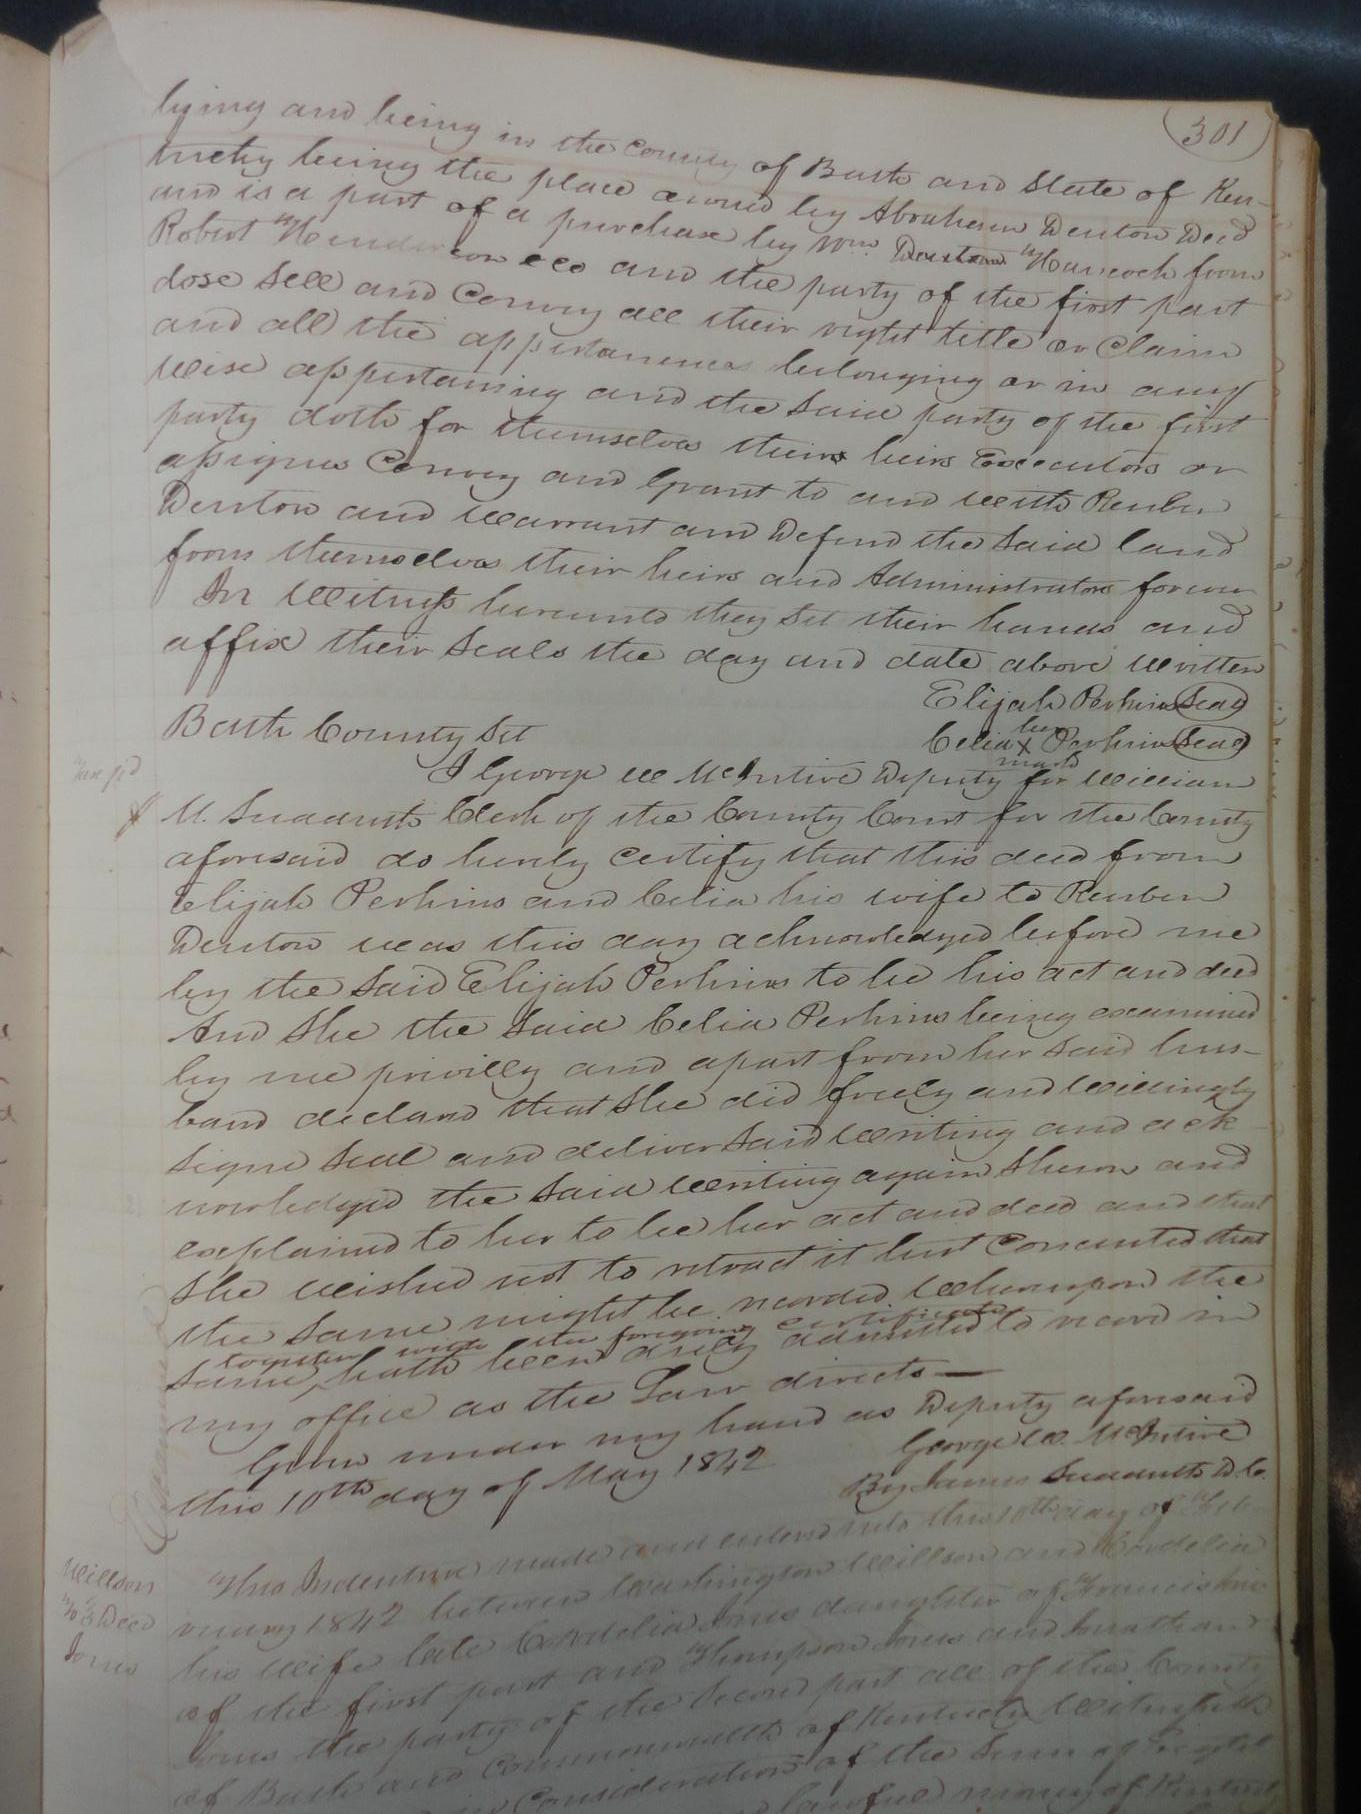 301
lying and being in the County of Bath and State of Ken-
tucky being the place owned by Abraham Denton Decd
and is a part of a purchase by Wm. Hancock from
Robert Henderson &co and the party of the first part
dose Sell and Convey all their right title or Claim
and all the appertanences belonging or in any
wise appertaining and the Said party of the first
party doth for themselves their heirs Executors or
assignes Convey and Grant to and with Reuben
Denton and Warrant and Defend the Said land
from themselves their heirs and Administrators forever
In Witness hereunto they Set their hands and
affix their Seals the day and date above written
Elijah Perkins Seal
her
Celia X Perkins Seal
mark
Bath County Sct
I George W McIntire Deputy for William
M. Sudduth Clerk of the County Court for the County
aforesaid do hereby Certify that this deed from
Elijah Perkins and Celia his wife to Reuben
Denton was this day acknowledged before me
by the Said Elijah Perkins to be his act and deed
And She the Said Celia Perkins being examined
by me privilly and apart from her Said hus-
band declard that She did freely and Willingly
Signe Seal and deliver Said Writing and ack
nowledged the Said Writing again Shewn and
explained to her to be her act and deed and that
She wished not to retract it but Consented that
the Same might be recorded Whereupon the
together with the foregoing certificate
Same, hath been duly admitted to record in
my office as the Law directs —
Given under my hand as Deputy aforesaid
this 10th day of May 1842
George W. McIntire
By James Sudduth D.C.
Willson
To } Deed
Jones
This Indenture made and entered into this 10th day of Feb-
ruary 1842 between Washington Willson and Cordelia
his Wife late Cordelia Jones daughter of Francis
of the first part and Thompson Jones and Jonathan
Jones the party of the Second part all of the County
of Bath and Commonwealth of Kentucky Witnesseth
in Consideration of the Sum of
lawful money of